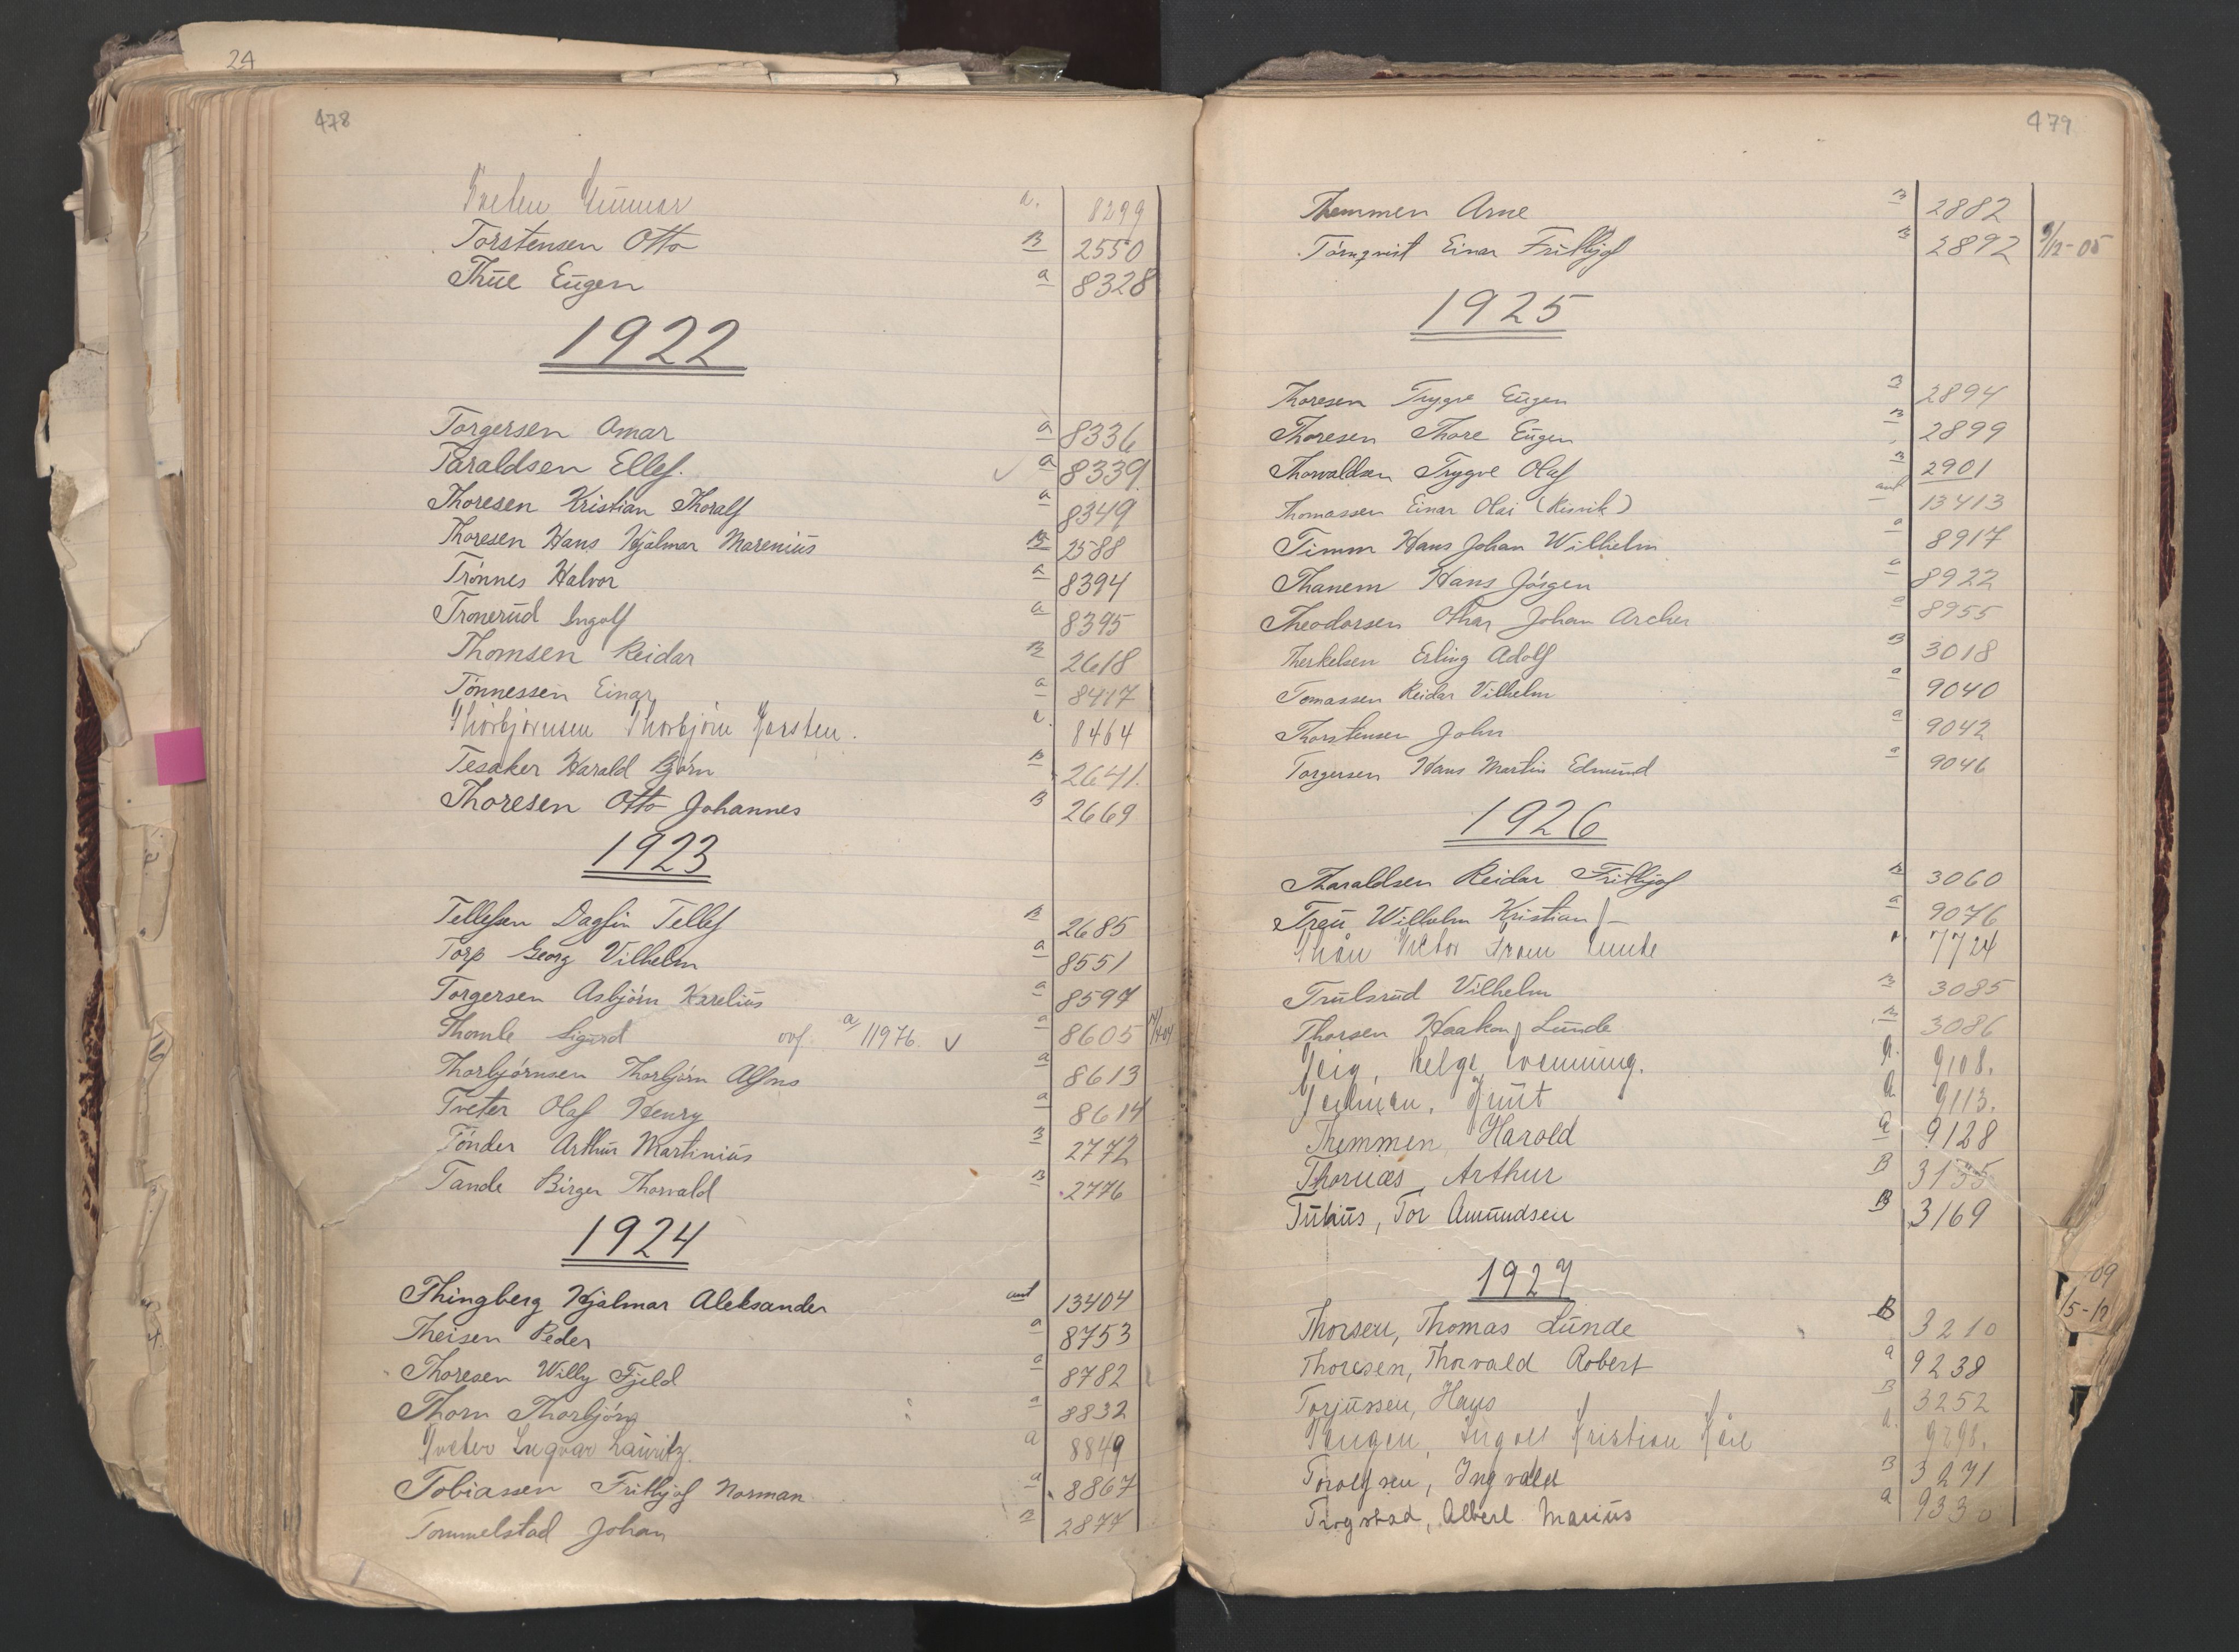 24
478
Tveten Gunnar a. 8299
Torstensen Otto B 2550
Thue Eugen a 8328
1922
Torgersen Omar a 8336
Taraldsen Ellef. a 8339
Thoresen Kristian Thoralf a 8349
Thoresen Hans Hjalmar Marenius B 2588
Trönnes Halvor a 8394
Tronerud Ingolf a 8395
Thomsen Reidar B 2618
Tönnessen Einar a 8417
Thorbjörnsen Thorbjörn Karsten. a. 8464
Tesaker Harald Björn B 2641.
Thoresen Otto Johannes B 2669
1923
Tellefsen Dagfin Tellef B 2685
Torp Georg Vilhelm a 8551
Torgersen Asbjörn Karelius a 8597
Thomle Sigurd ovf. a/11976 a 8605
Thorbjörnsen Thorbjörn Alfons a 8613
Tveter Olaf Henry a 8614
Tönder Arthur Martinius B 2772
Tande Birger Thorvald B 2776
1924
Thingberg Hjalmar Aleksander aut 13404
Theisen Peder a 8753
Thoresen Willy Fjeld a 8782
Thorn Thorbjörn a 8832
Tveter Ingvar Lauritz. a 8849
Tobiassen Frithjof Norman a 8867
Tommelstad Johan B 2877
479
Themmen Arne B 2882
Törnqvist Einar Frithjof B 2892 9/12-05
1925
Thoresen Trygve Eugen B 2894
Thoresen Thore Eugen B 2899
Thorvaldsen Trygve Olaf B 2901
Thomassen Einar Olai (Risvik) aut 13413
Timm Hans Johan Wilhelm a 8917
Thanem Hans Jörgen a 8922
Theodorsen Othar Johan Archer a 8955
Therkelsen Erling Adolf B 3018
Tomassen Reidar Vilhelm a 9040
Thorstensen John a 9042
Torgersen Hans Martin Edmund a 9046
1926
Tharaldsen Reidar Frithjof B 3060
Treu Wilhelm Kristian a 9076
Victor 7724
Trulsrud Vilhelm B 3085
Thorsen Haakon Lunde B 3086
Helge a. 9108.
Knut a 9113.
Themmen Harald a 9128
Thornæs Arthur B 3155
Tor Amundsen B 3169
1927
Thorsen, Thomas Lunde B 3210
Thoresen, Thorvald Robert a 9238
Torjussen, Hans B 3252
Tangen, Ingolf Kristian Karl a. 9298.
Torolfsen, Ingvald B 3271
Trogstad, Albert Marius a 9330
09
15-12